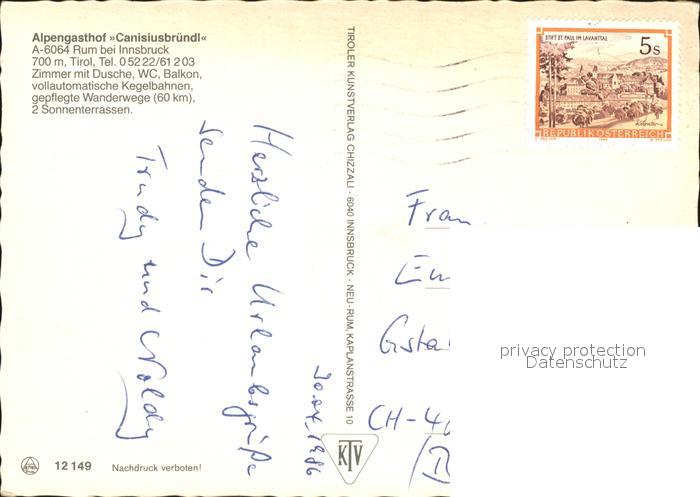 Alpengasthof »Canisiusbründl«
A-6064 Rum bei Innsbruck
700 m, Tirol, Tel. 0 52 22/61 2 03
Zimmer mit Dusche, WC, Balkon,
vollautomatische Kegelbahnen,
gepflegte Wanderwege (60 km),
2 Sonnenterrassen.
30.04.1986
Herzliche Urlaubsgrüße
senden Dir
Trudy und Noldy
TIROLER KUNSTVERLAG CHIZZALI · 6040 INNSBRUCK · NEU-RUM, KAPLANSTRASSE 10
STIFT ST. PAUL IM LAVANTTAL
5s
REPUBLIK ÖSTERREICH
Frau
Em
Gsta
CH-4
privacy protection
Datenschutz
KTV
12 149
Nachdruck verboten!